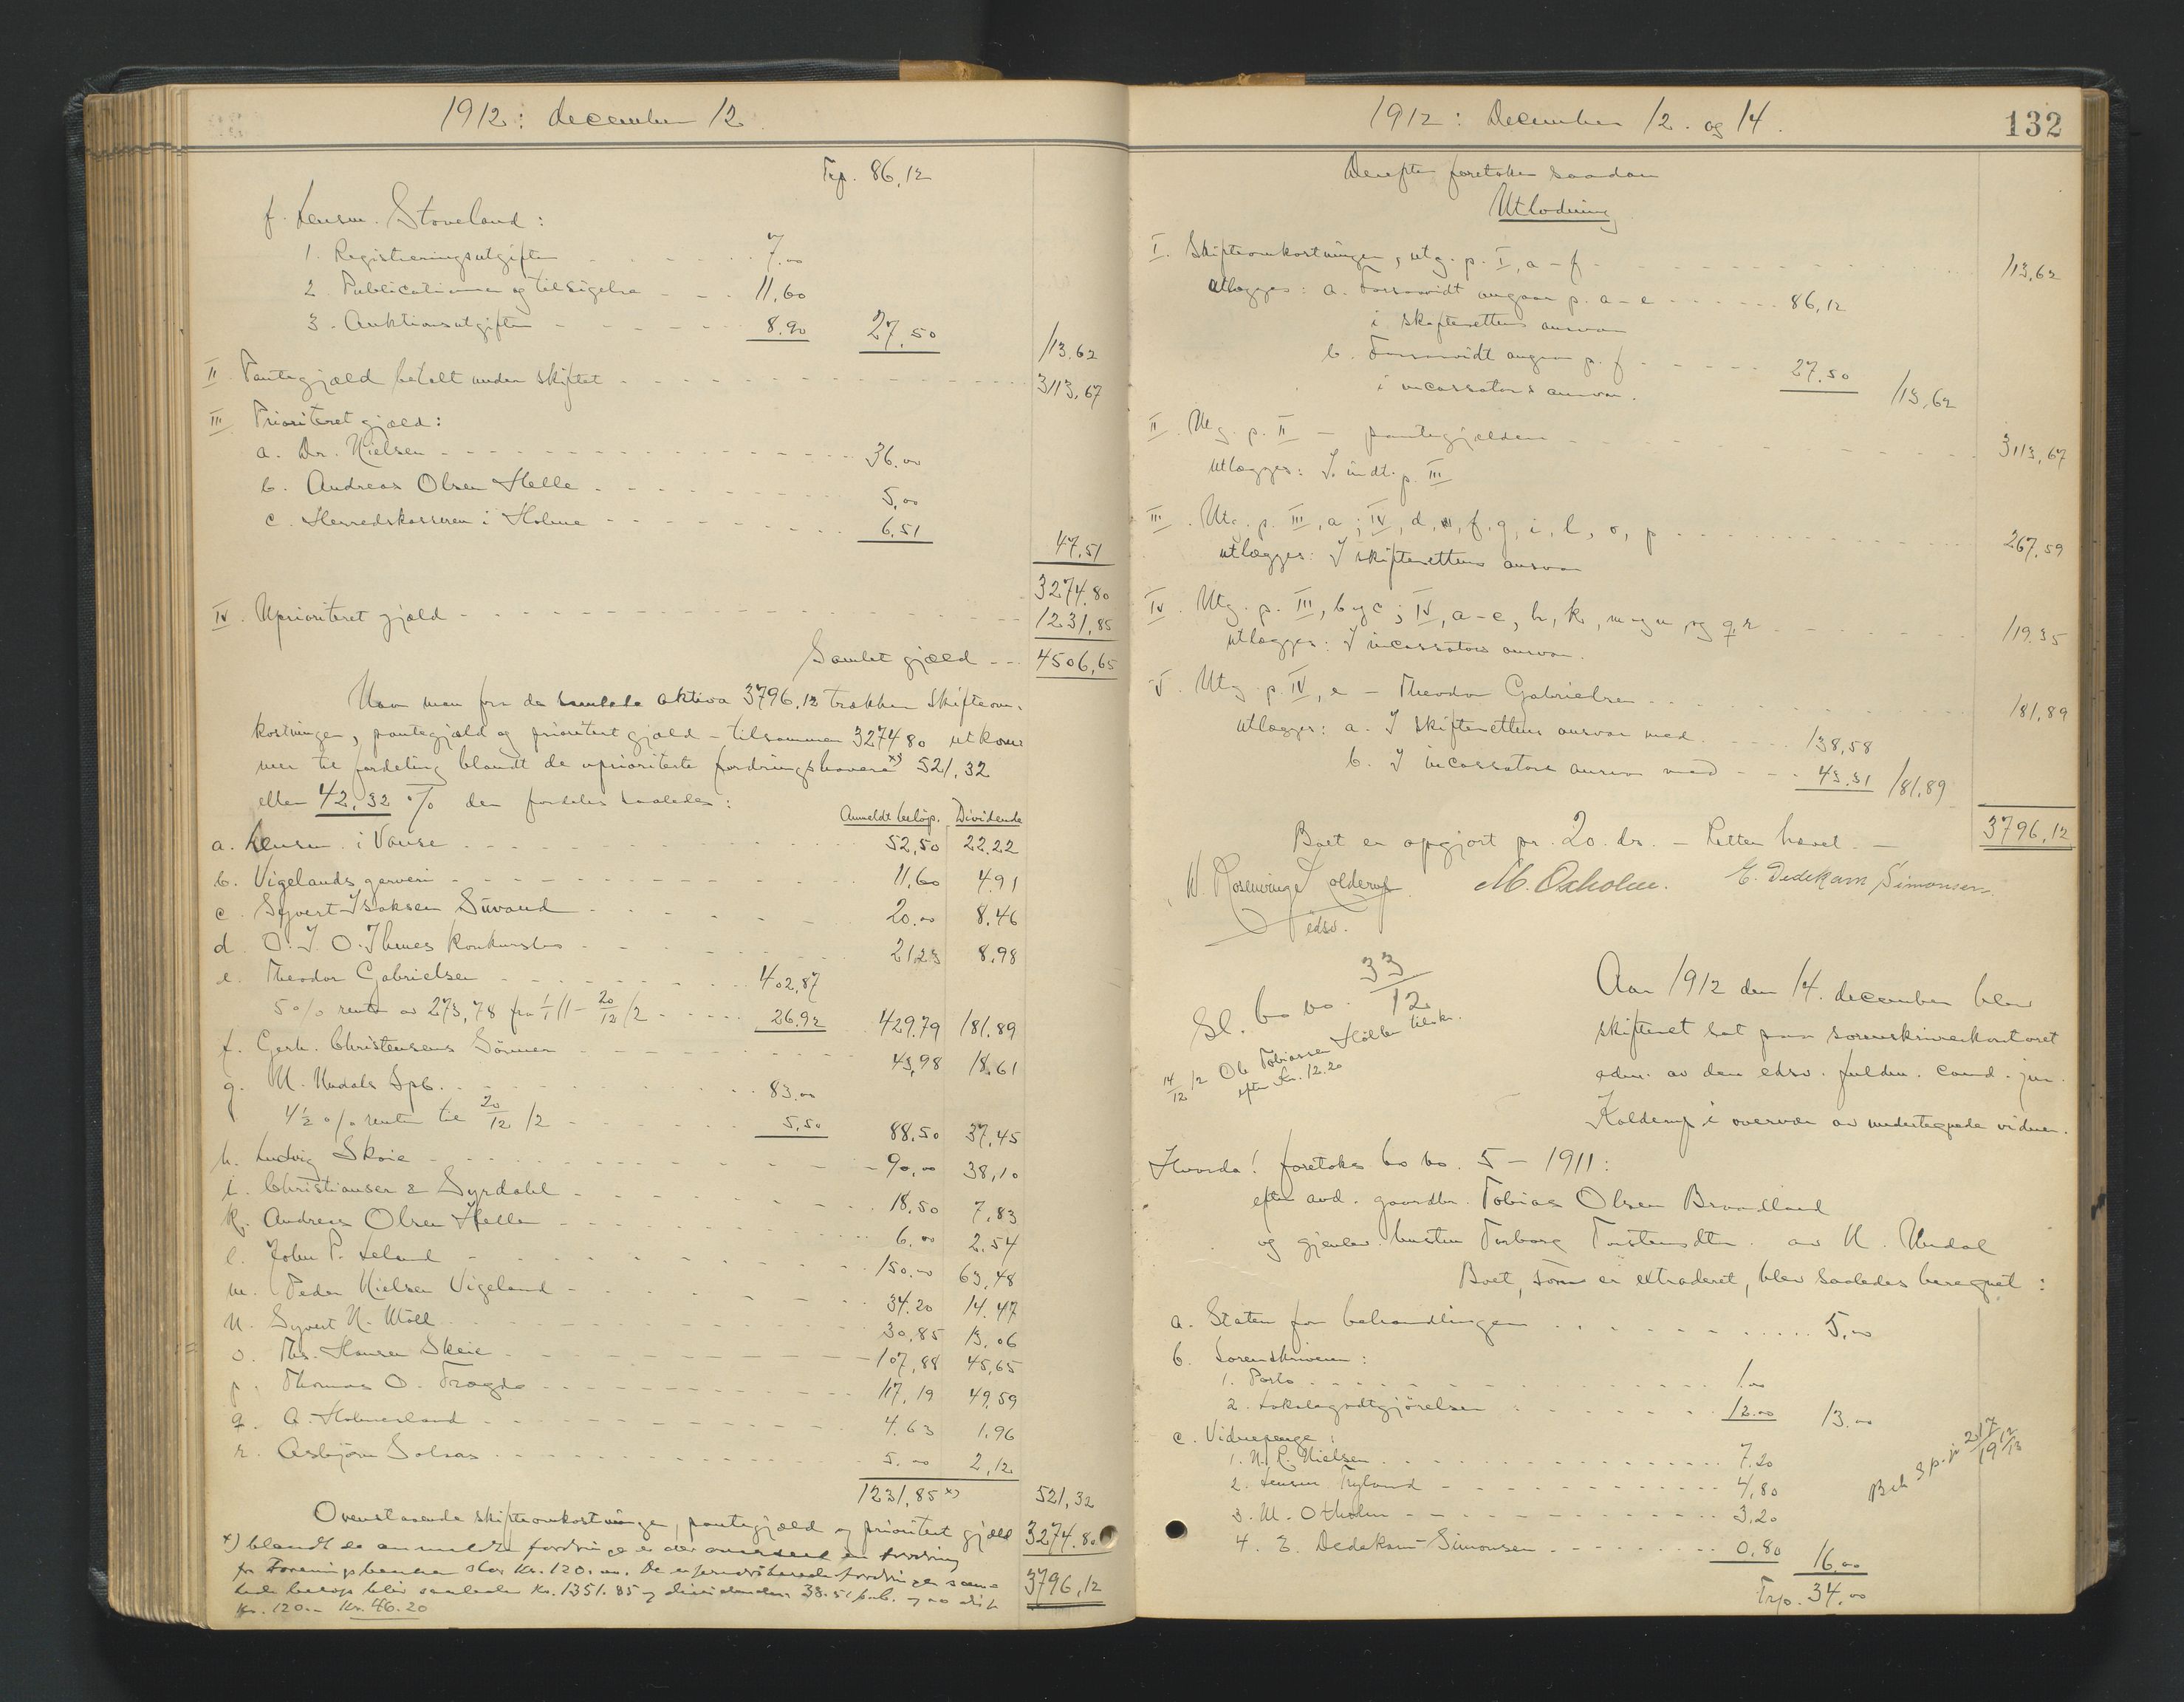 1912: december 12.
Trp. 86,12
f. Lensm. Stoveland:
1. Registreringsutgifter - - - - - 7.00
2. Publicationer og tilsigelse - - - 11,60
3. Auktionsutgifter - - - - - 8.90 27,50 113.62
II Pantegjæld betalt under skiftet - - - - - 3113,67
III Prioritert gjæld:
a. Dr. Nielsen - - - - - 36.00
b. Andreas Olsen Helle - - - - - 5,00
c. Herredskassereren i Holme - - - - - 6,51 47,51
3274.80
IV. Uprioritert gjæld - - - - - 1231,85
Samlet gjæld - - - 4506,65
Naar man fra de samlede aktiva 3796,12 trækker skifteom-
kostninger, pantegjæld og prioritert gjæld - tilsammen 3274 80 utkom-
mer til fordeling blandt de uprioriterte fordringshavere x) 521,32
eller 42,32 % der fordeles saaledes:
Anmeldt beløp. Dividende
a. Lensm. i Vanse - - - - - 52,50 22.22
b. Vigelands garveri - - - - - 11,60 4.91
c. Syvert Isaksen - - - - - 20.00 8.46
d. O. J. O. Ihmes konkursbo - - - - - 21,23 8,98
e. Theodor Gabrielsen - - - - - 402,87
5 % rente av 273,78 fra 1/1 11 - 20/12 12 - - - - - 26.92 429.79 181.89
f. Gerh. Christensens Sønner - - - - - 43,98 18.61
g. N. Undals Spb. - - - - - 83.00
4½ % renter til 20/12 12 - - - - - 5,50 88.50 37,45
h. Ludvig Skoie - - - - - 90,00 38,10
i. Christiansen & Syrdahl - - - - - 18.50 7,83
k. Andreas Olsen Helle - - - - - 6.00 2,54
l. John P. Leland - - - - - 150.00 63,48
m. Peder Nielsen Vigeland - - - - - 34.20 14.47
n. Syvert N. Møll - - - - - 30,85 13,06
o. Ths. Hansen Skeie - - - - - 107,88 45,65
p. Thomas O. Trægde - - - - - 117,19 49,59
q. A. Holmesland - - - - - 4.63 1,96
r. Asbjørn Solaas - - - - - 5.00 2,12
1231,85 x) 521,32
Ovenstaaende skifteomkostninger, pantegjæld og prioritert gjæld 3274.80
x) blandt de anmeldte fordringer er der oversett en fordring
fra Foreningsbanken stor Kr. 120.00. De uprioriterede fordringer sam-
lede beløp blir saaledes Kr. 1351.85 og dividenden 38.51 pCt.
Kr. 120.- Kr. 46.20
3796,12
1912: December 12. og 14.
132
Derefter foretokes saadan
Utlodning
I. Skifteomkostninger, utg. p. I, a - f - - - - - 113,62
utlægges: a. Forsaavidt angaar p. a - e - - - - - 86,12
i skifterettens ansvar
b. Forsaavidt angaar p. f - - - - - 27.50 113,62
i incassators ansvar.
II. Utg. p. II - pantegjælden - - - - - 3113,67
utlægges: I indt. p. III
III. Utg. p. III, a; IV, d, f, g, i, l, o, p - - - - - 267,59
utlægges: I skifterettens ansvar
IV. Utg. p. III, b og c; IV, a - c, h, k, m og n, og q, r - - - - - 119.35
utlægges: I incassators ansvar.
V. Utg. p. IV, e - Theodor Gabrielsen - - - - - 181,89
utlægges: a. I skifterettens ansvar med - - - - 138,58
b. I incassators ansvar med - - - 43.31 181,89
3796,12
Boet er opgjort pr. 20. ds. - Retten hævet. -
W. Rosenvinge Kolderup M. Oxholm. E. Dedekam Simonsen.
edsv.
Sl. bo no. 33/12
14/12 12 Ole Tobiassen Hålle tilskr.
efter kr. 12.20
Aar 1912 den 14. december blev
skifteret sat paa sorenskriverkontoret
adm. av den edsv. fuldm. cand. jur.
Kolderup i overvær av undertegnede vidner.
Hvorda! foretokes bo no. 5 - 1911:
efter avd. gaardbr. Tobias Olsen Brandland
og gjenlev. hustru Torborg Torstensdtr. av N. Undal
Boet, som er extraderet, blev saaledes beregnet:
a. Staten for behandlingen . . . . . 5.00
b. Sorenskriveren:
1. Porto - - - - - 1.00
2. Lokalegodtgjørelse - - - - - 12.00 13.00
c. Vidnepenge:
1. N. P. Nielsen - - - - - 7.20
2. Lensm. Tryland - - - - - 4,80
3. M. Oxholm - - - - - 3,20
4. E. Dedekam-Simonsen - - - - - 0,80 16.00
Trp. 34.00